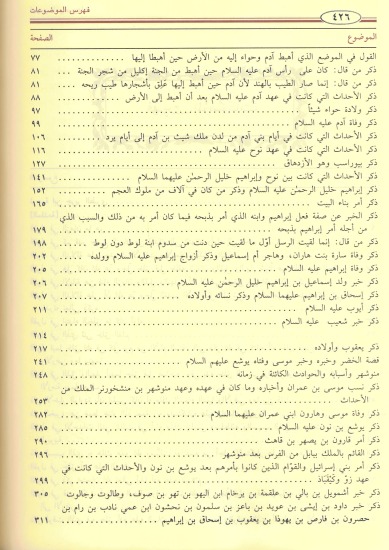 فهرس الموضوعات
٤٢٦
الموضوع الصفحة
القول في الموضع الذي أهبط آدم وحواء إليه من الأرض حين أهبطا إليها ٧٧
ذكر من قال: كان على رأس آدم عليه السلام حين أهبط من الجنة إكليل من شجر الجنة ٨١
ذكر من قال: إنما صار الطيب بالهند لأن آدم حين أهبط إليها علق بأشجارها طيب ريحه ٨١
ذكر الأحداث التي كانت في عهد آدم عليه السلام بعد أن أهبط إلى الأرض ٨٨
ذكر ولادة حواء شيثاً ٩٧
ذكر وفاة آدم عليه السلام ٩٩
ذكر الأحداث التي كانت في أيام بني آدم من لدن ملك شيث بن آدم إلى أيام يرد ١٠٦
ذكر الأحداث التي كانت في عهد نوح عليه السلام ١١٦
ذكر بيوراسب وهو الأزدهاق ١٢٧
ذكر الأحداث التي كانت بين نوح وإبراهيم خليل الرحمن عليهما السلام ١٤١
ذكر إبراهيم خليل الرحمن عليه السلام وذكر من كان في من ملوك العجم ١٥٢
ذكر أمر بناء البيت ١٦٥
ذكر الخبر عن صفة فعل إبراهيم وابنه الذي أمر بذبحه فيما كان أمر به من ذلك والسبب الذي
من أجله أمر إبراهيم بذبحه ١٧٩
ذكر من قال: إنما لقيت الرسل أول ما لقيت حين دنت من سدوم ابنة لوط دون لوط ١٩٨
ذكر وفاة سارة بنت هاران، وهاجر أم إسماعيل وذكر أزواج إبراهيم عليه السلام وولده ٢٠٢
ذكر وفاة إبراهيم عليه السلام ٢٠٥
ذكر خبر ولد إسماعيل بن إبراهيم خليل الرحمن عليه السلام ٢٠٦
ذكر إسحاق بن إبراهيم عليهما السلام وذكر نسائه وأولاده ٢٠٧
ذكر أيوب عليه السلام ٢١١
ذكر خبر شعيب عليه السلام
٢١٤
ذكر يعقوب وأولاده ٢١٧
قصة الخضر وخبره وخبر موسى وفتاه يوشع عليهم السلام ٢٤١
منوشهر وأسبابه والحوادث الكائنة في زمانه ٢٤٨
ذكر نسب موسى بن عمران وأخباره وما كان في عهده وعهد منوشهر بن منشخورنر الملك من
الأحداث ٢٥٣
ذكر وفاة موسى وهارون ابني عمران عليهما السلام ٢٨٢
ذكر يوشع بن نون عليه السلام ٢٨٥
ذكر أمر قارون بن يصهر بن قاهث ٢٩٠
ذكر القائم بالملك ببابل من الفرس بعد منوشهر ٢٩٦
ذكر أمر بني إسرائيل والقوام الذين كانوا بأمرهم بعد يوشع بن نون والأحداث التي كانت في
عهد زو وكيقباذ ٢٩٩
ذكر خبر أشمويل بن بالي بن علقمة بن يرخام ابن اليهو بن تهو بن صوف، وطالوت وجالوت ٣٠٥
ذكر خبر داود بن إيشى بن عويد بن باعز بن سلمون بن نحشون ابن عمي نادب بن رام بن
حصرون بن فارص بن يهوذا بن يعقوب بن إسحاق بن إبراهيم ٣١١